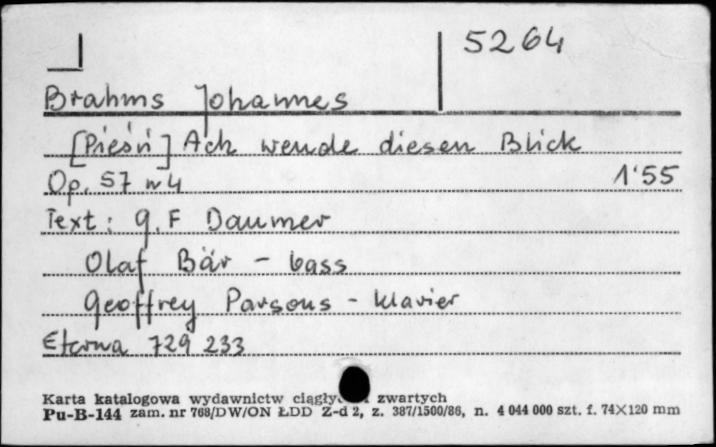 5264
Brahms Johannes
[Pieśń] Ach wende diesen Blick
Op. 57 nr 4 1'55
Text: G. F Daumer
Olaf Bär - bass
Geoffrey Parsons - klavier
Eterna 729 233
Karta katalogowa wydawnictw zwartych
Pu-B-144 zam. nr 768/DW/ON ŁDD Z-d 2, z. 387/1500/86, n. 4 044 000 szt. f. 74×120 mm